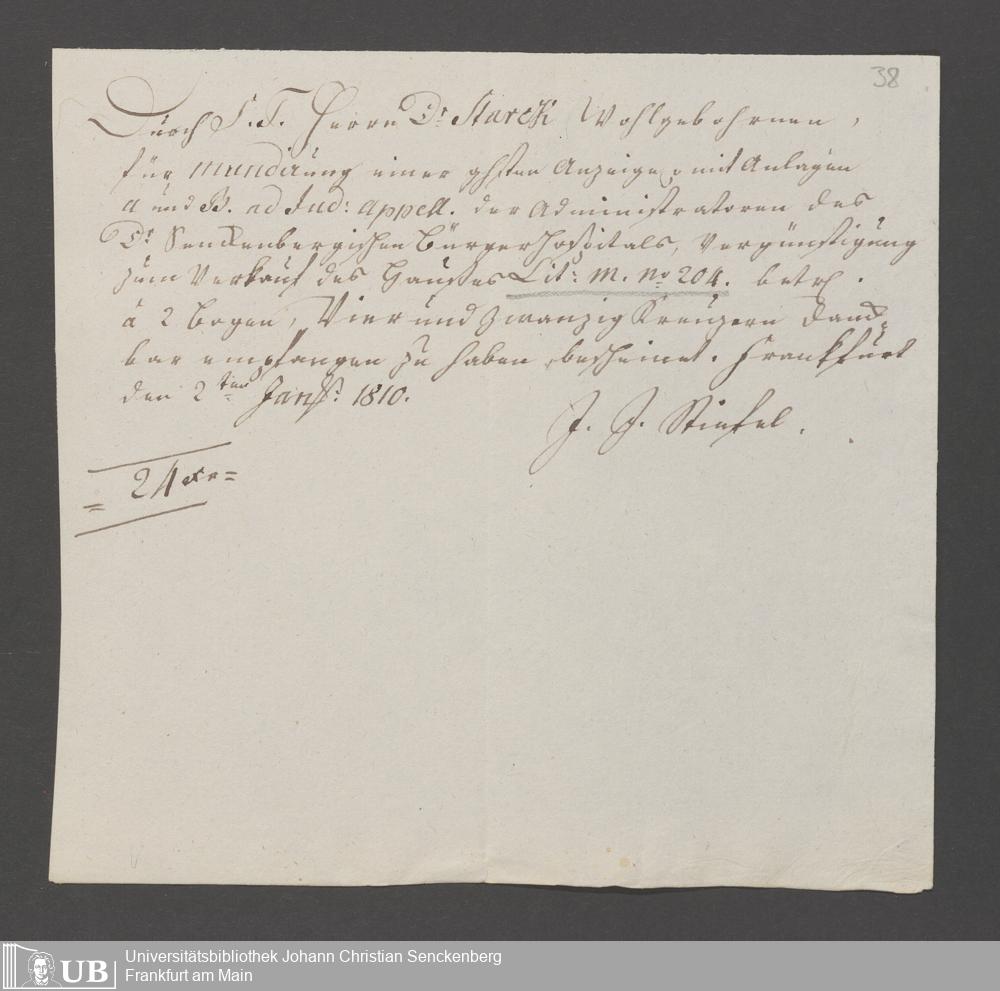 38
Durch S. T. Herrn Dr. Starck Wohlgebohrnen,
für mundirung einer ghsten Anzeige, mit Anlagen
A und B. ad Jud: appell. der Administratoren des
Dr. Senckenbergischen Bürgerhospitals, Vergünstigung
zum Verkauf des Hauses Lit: M. No 204. betr.
à 2 bogen, Vier und zwanzig Kreuzern dank-
bar empfangen zu haben, bescheinet. Frankfurt
den 2ten Jan: 1810.
J. J. Stiefel.
= 24 xr =
Universitätsbibliothek Johann Christian Senckenberg
Frankfurt am Main
UB